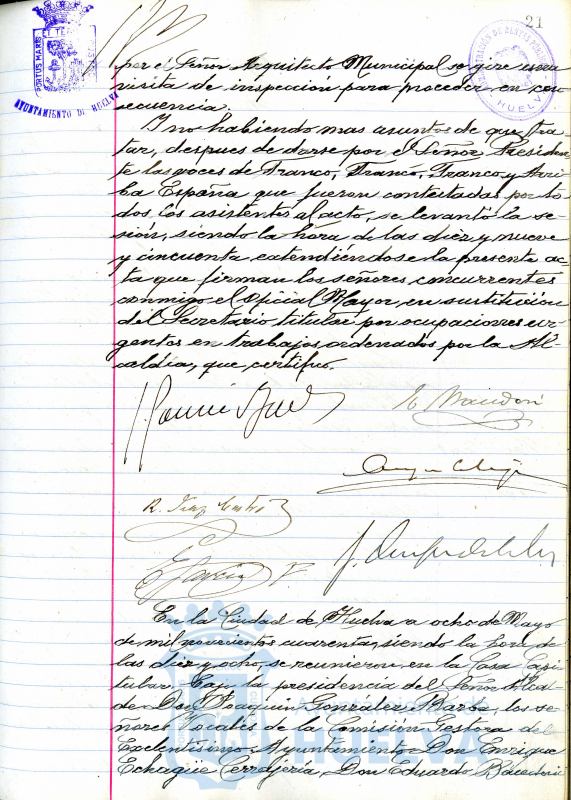 21
PORTUS MARIS ET TERRAE CUSTODIA
AYUNTAMIENTO DE HUELVA
HUELVA
por el Señor Arquitecto Municipal se gire una
visita de inspección para proceder en con
secuencia.
Y no habiendo mas asuntos de que tra-
tar, despues de darse por el Señor Presiden
te las voces de Franco, Franco, Franco y Arri
ba España que fueron contestadas por to
dos los asistentes al acto, se levantó la se-
sión, siendo la hora de las diez y nueve
y cincuenta, extendiéndose la presente ac
ta que firman los señores concurrentes
conmigo el Oficial Mayor, en sustitución
del Secretario titular por ocupaciones ur-
gentes en trabajos ordenados por la Al-
caldía, que certifico.
En la Ciudad de Huelva a ocho de Mayo
de mil novecientos cuarenta, siendo la hora de
las diez y ocho, se reunieron en la Casa Capi
tular, bajo la presidencia del Señor Alcal-
de Don Joaquin Gonzalez Barba, los se-
ñores Vocales de la Comisión Gestora del
Excelentísimo Ayuntamiento Don Enrique
Echagüe Cerrajería, Don Eduardo